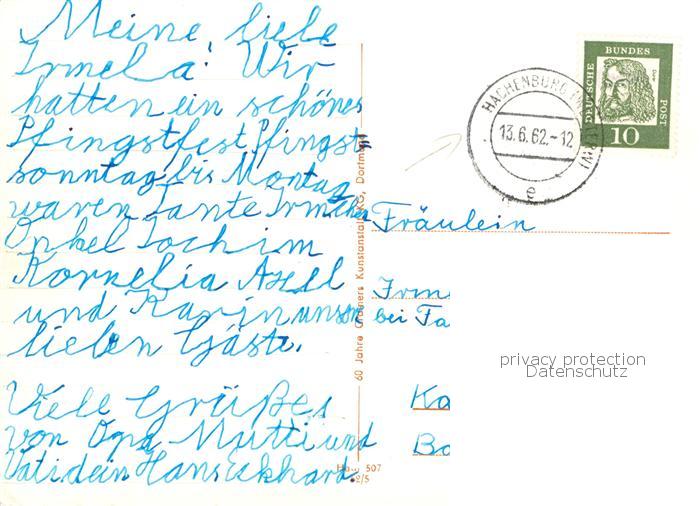 Meine liebe
Irmela! Wir
hatten ein schönes
Pfingstfest Pfingst
sonntag bis Montag
waren Tante Irmchen
Onkel Jochim
Kornelia Axel
und Karin unsre
lieben Gäste.
Viele Grüße
von Opa Mutti und
Vati dein Hans Eckhard.
60 Jahre Gruners Kunstanstalt KG, Dortmund
507
2/5
HACHENBURG
13.6.62.-12
e
DEUTSCHE
BUNDES
POST
10
Fräulein
Irm
bei Fa
Ka
Bo
privacy protection
Datenschutz